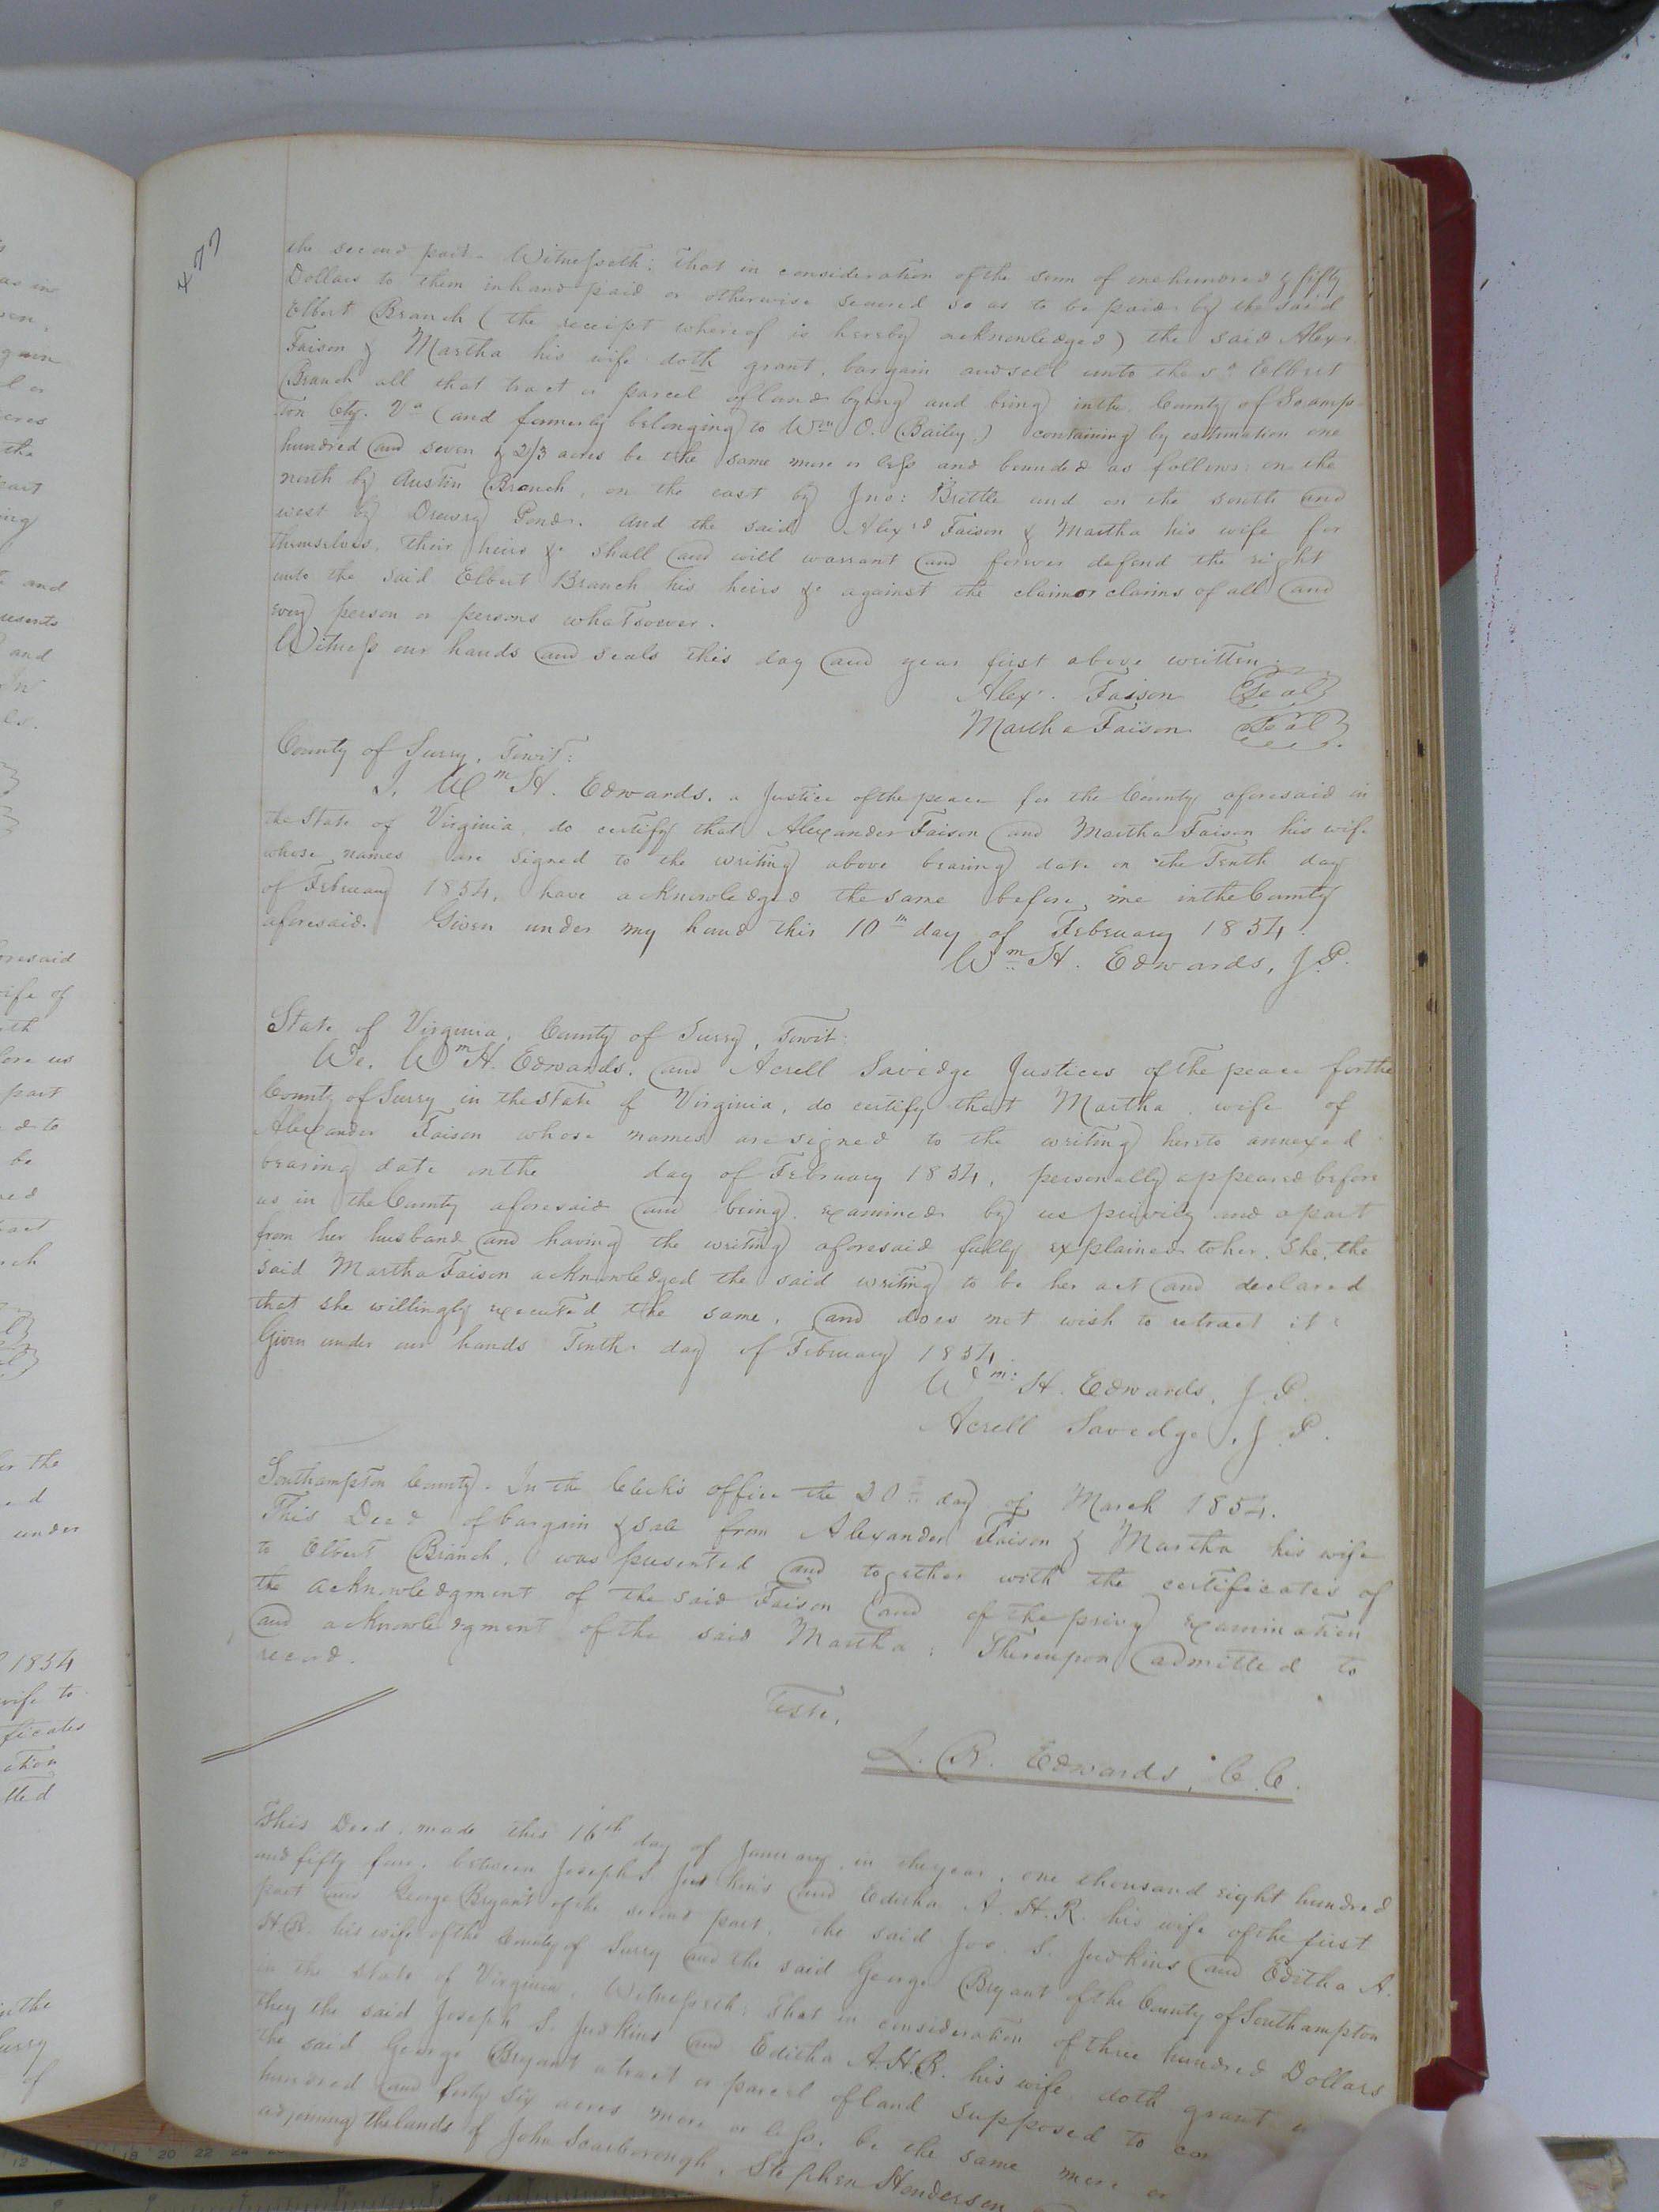 477
the second part. Witnesseth: That in consideration of the sum of one hundred & fifty
Dollars to them in hand paid or otherwise secured so as to be paid by the said
Elbert Branch (the receipt whereof is hereby acknowledged) the said Alexr
Faison & Martha his wife doth grant, bargain and sell unto the sd Elbert
Branch all that tract or parcel of land lying and being in the County of Soamp-
ton Cty. Va (and formerly belonging to Wm O. Bailey) containing by estimation one
hundred and seven & 2/3 acres be the same more or less and bounded as follows: on the
north by Austin Branch, on the east by Jno: Brittle and on the south and
west by Drewry Pond. And the said Alexd Faison & Martha his wife for
themselves, their heirs &c shall and will warrant and forever defend the right
unto the said Elbert Branch his heirs &c against the claim or claims of all and
every person or persons whatsoever.
Witness our hands and seals this day and year first above written.
Alexr. Faison Seal
Martha Faison Seal
County of Surry, Towit:
I, Wm H. Edwards, a Justice of the peace for the County aforesaid in
the State of Virginia, do certify that Alexander Faison and Martha Faison his wife
whose names are signed to the writing above bearing date on the Tenth day
of February 1854, have acknowledged the same before me in the County
aforesaid. Given under my hand this 10th day of February 1854.
Wm H. Edwards, J.P.
State of Virginia, County of Surry, Towit:
We, Wm H. Edwards, and Acrell Savedge Justices of the peace for the
County of Surry in the State of Virginia, do certify that Martha, wife of
Alexander Faison whose names are signed to the writing hereto annexed
bearing date on the day of February 1854, personally appeared before
us in the County aforesaid and being examined by us privily and apart
from her husband and having the writing aforesaid fully explained to her, she, the
said Martha Faison acknowledged the said writing to be her act and declared
that she willingly executed the same, and does not wish to retract it:
Given under our hands Tenth day of February 1854.
Wm: H. Edwards, J.P.
Acrell Savedge, J.P.
Southampton County. In the Clerk's office the 20th day of March 1854.
This Deed of bargain & sale from Alexander Faison & Martha his wife
to Elbert Branch, was presented and together with the certificates of
the acknowledgment of the said Faison and of the privy examination
and acknowledgment of the said Martha: Thereupon admitted to
record.
Teste,
L. R. Edwards, C.C.
This Deed, made this 16th day of January, in the year, one thousand eight hundred
and fifty four, between Joseph S. Judkins and Editha A. H. R. his wife of the first
part and George Bryant of the second part, the said Jos. S. Judkins and Editha A.
H. R. his wife of the County of Surry and the said George Bryant of the County of Southampton
in the State of Virginia, Witnesseth: That in consideration of three hundred Dollars
they the said Joseph S. Judkins and Editha A. H. R. his wife doth grant
the said George Bryant a tract or parcel of land supposed to con
hundred and forty six acres more or less, be the same more or
adjoining the lands of John Scarborough, Stephen Henderson